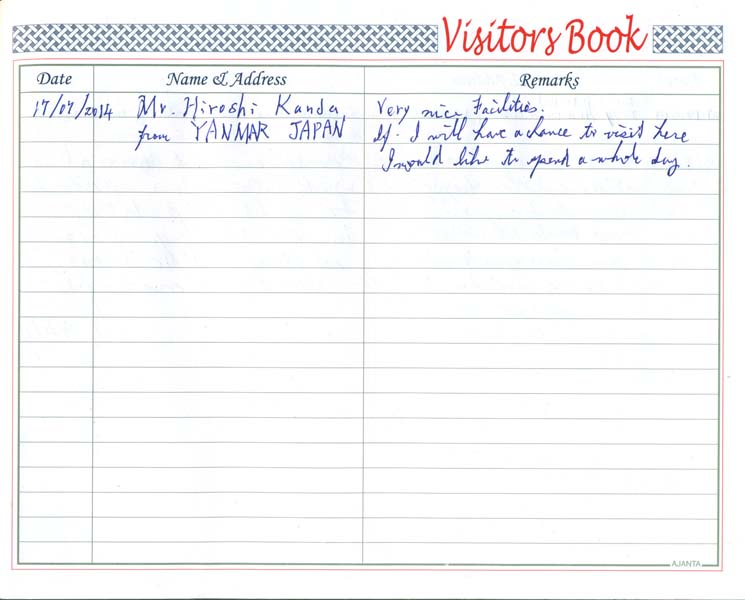 Visitors Book
Date Name & Address Remarks
17/07/2014 Mr. Hiroshi Kanda Very nice Facilities.
from YANMAR JAPAN If I will have a chance to visit here
I would like to spend a whole day.
AJANTA